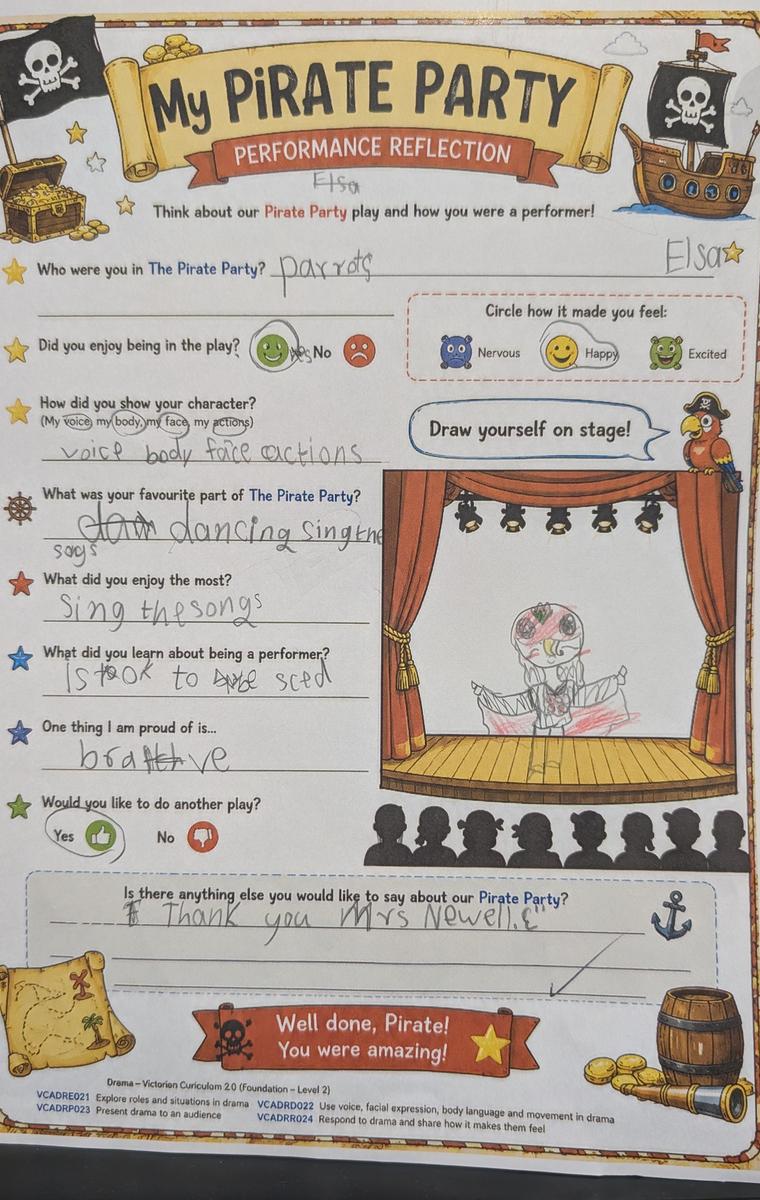 My PiRATE PARTY
PERFORMANCE REFLECTION
Elsa
Think about our Pirate Party play and how you were a performer!
Who were you in The Pirate Party? parrots Elsa
Circle how it made you feel:
Nervous Happy Excited
Did you enjoy being in the play? Yes No
How did you show your character?
(My voice, my body, my face, my actions)
voice body face actions
Draw yourself on stage!
What was your favourite part of The Pirate Party?
dancing sing the
sogs
What did you enjoy the most?
sing the songs
What did you learn about being a performer?
to sced
One thing I am proud of is...
brave
Would you like to do another play?
Yes No
Is there anything else you would like to say about our Pirate Party?
Thank you Mrs Newell.
Well done, Pirate!
You were amazing!
Drama – Victorian Curiculum 2.0 (Foundation – Level 2)
VCADRE021 Explore roles and situations in drama VCADRD022 Use voice, facial expression, body language and movement in drama
VCADRP023 Present drama to an audience VCADRR024 Respond to drama and share how it makes them feel